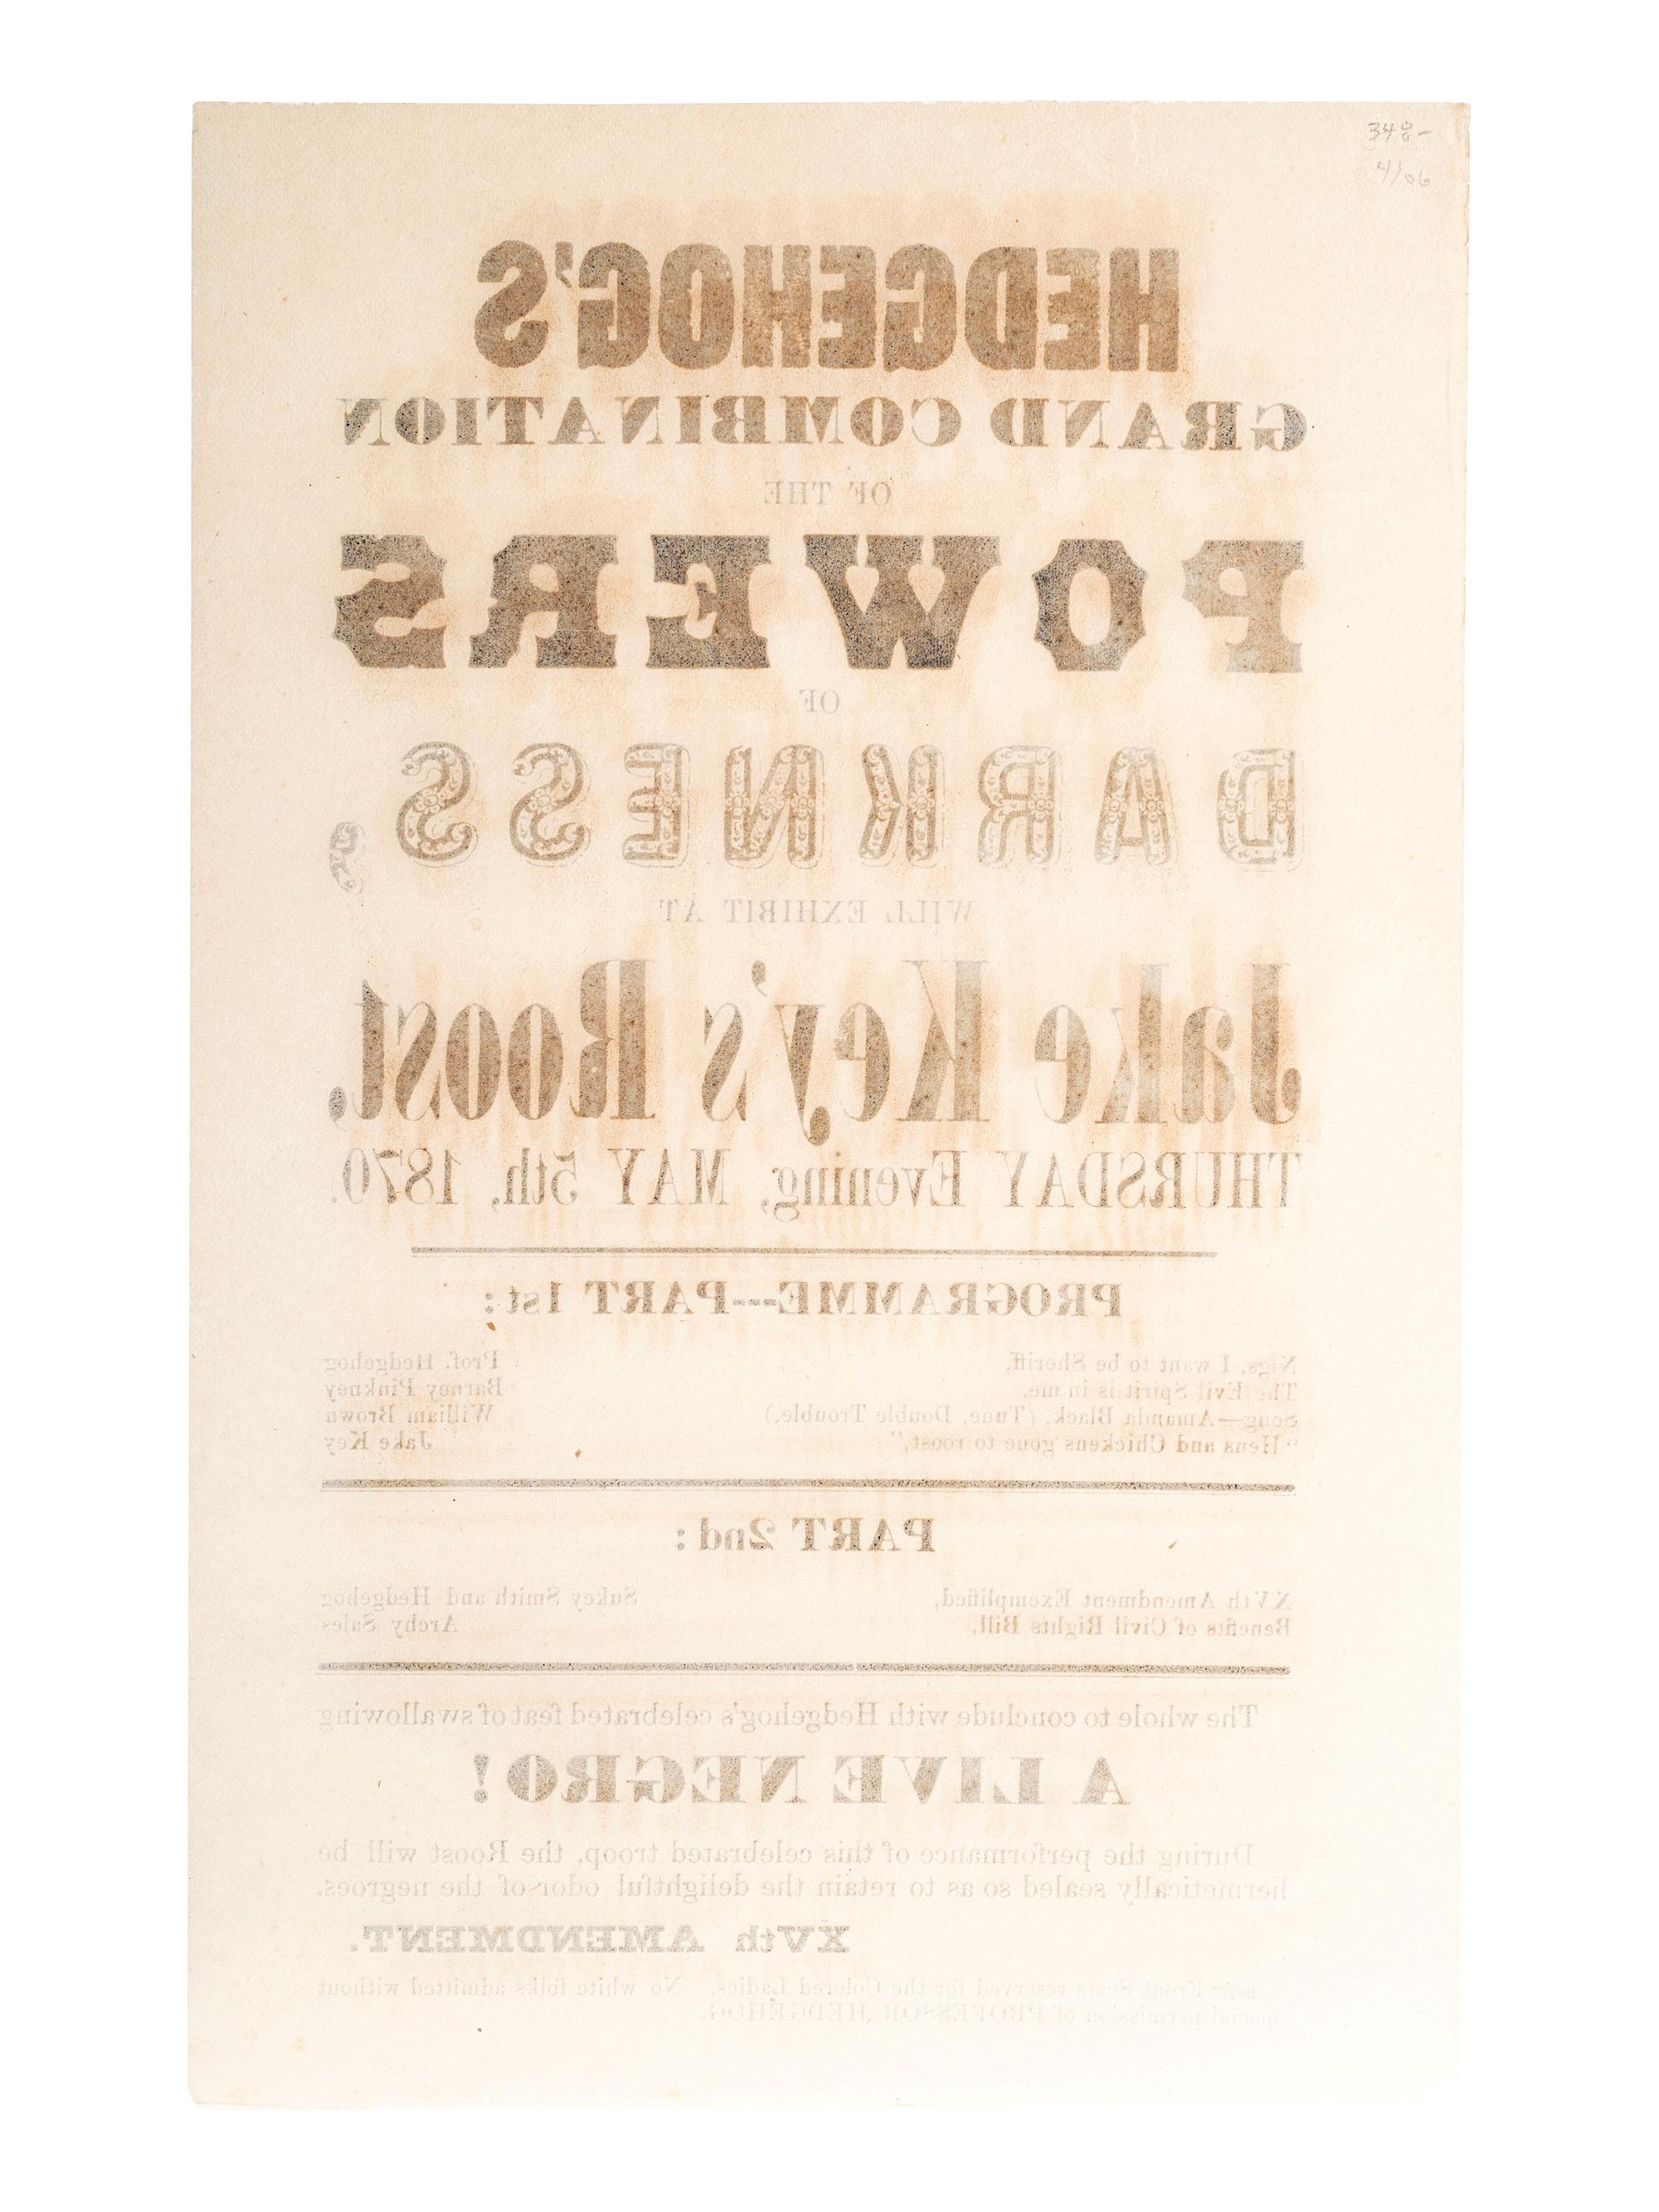 348-
4/06
HEDGEHOG'S
GRAND COMBINATION
OF THE
POWERS
OF
DARKNESS,
WILL EXHIBIT AT
Jake Key's Roost,
THURSDAY Evening, MAY 5th, 1870.
PROGRAMME---PART 1st:
Nigs, I want to be Sheriff, Prof. Hedgehog
The Evil Spirit is in me, Barney Pinkney
Song—Amanda Black, (Tune, Double Trouble,) William Brown
"Hens and Chickens gone to roost," Jake Key
PART 2nd:
XVth Amendment Exemplified, Sukey Smith and Hedgehog
Benefits of Civil Rights Bill, Archy Sales
The whole to conclude with Hedgehog's celebrated feat of swallowing
A LIVE NEGRO!
During the performance of this celebrated troop, the Roost will be
hermetically sealed so as to retain the delightful odor of the negroes.
XVth AMENDMENT.
Front Seats reserved for the Colored Ladies. No white folks admitted without
special permission of PROFESSOR HEDGEHOG.